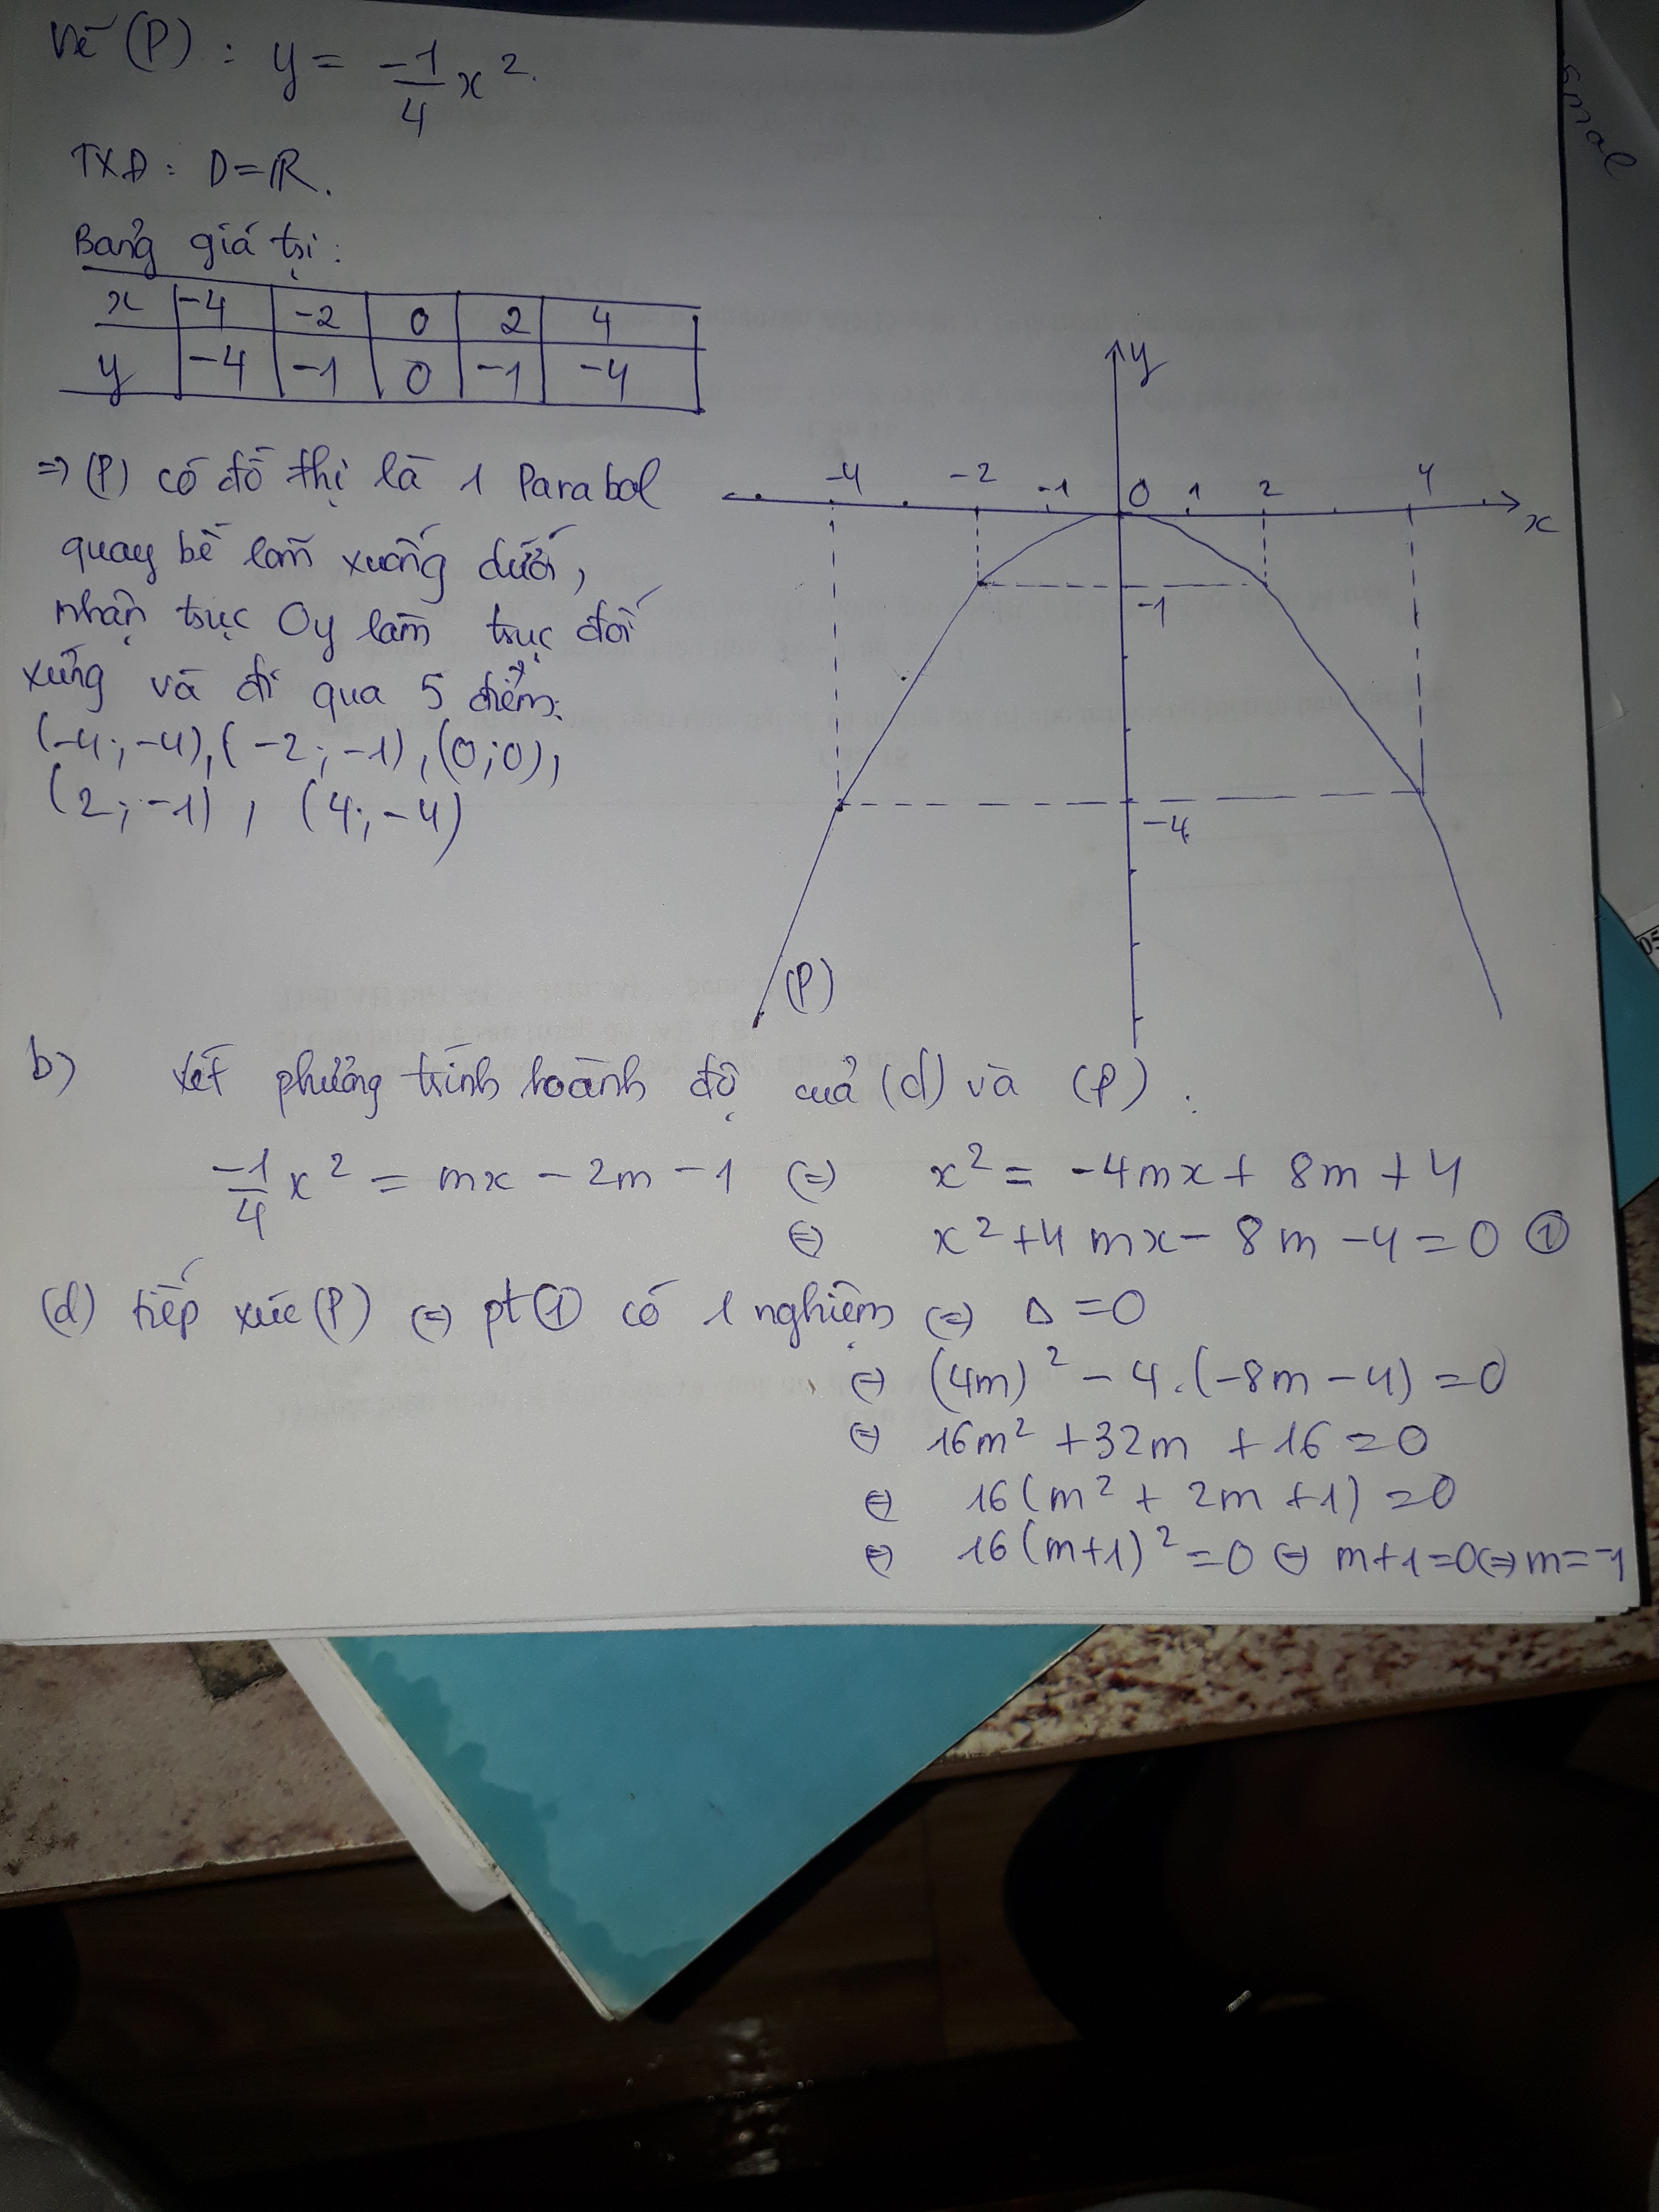 Vẽ (P) : y = -1/4 x².
TXĐ : D = ℝ.
Bảng giá trị :
x | -4 | -2 | 0 | 2 | 4
y | -4 | -1 | 0 | -1 | -4
=> (P) có đồ thị là 1 Parabol
quay bề lõm xuống dưới,
nhận trục Oy làm trục đối
xứng và đi qua 5 điểm:
(-4;-4), (-2;-1), (0;0),
(2;-1), (4;-4)
y
-4 -2 -1 0 1 2 4
x
-1
-4
(P)
b) Xét phương trình hoành độ của (d) và (P) :
-1/4 x² = mx - 2m - 1 (=) x² = -4mx + 8m + 4
(=) x² + 4mx - 8m - 4 = 0 ①
(d) tiếp xúc (P) (=) pt ① có 1 nghiệm (=) Δ = 0
(=) (4m)² - 4.(-8m - 4) = 0
(=) 16m² + 32m + 16 = 0
(=) 16(m² + 2m + 1) = 0
(=) 16(m+1)² = 0 (=) m+1 = 0 (=) m = -1
05